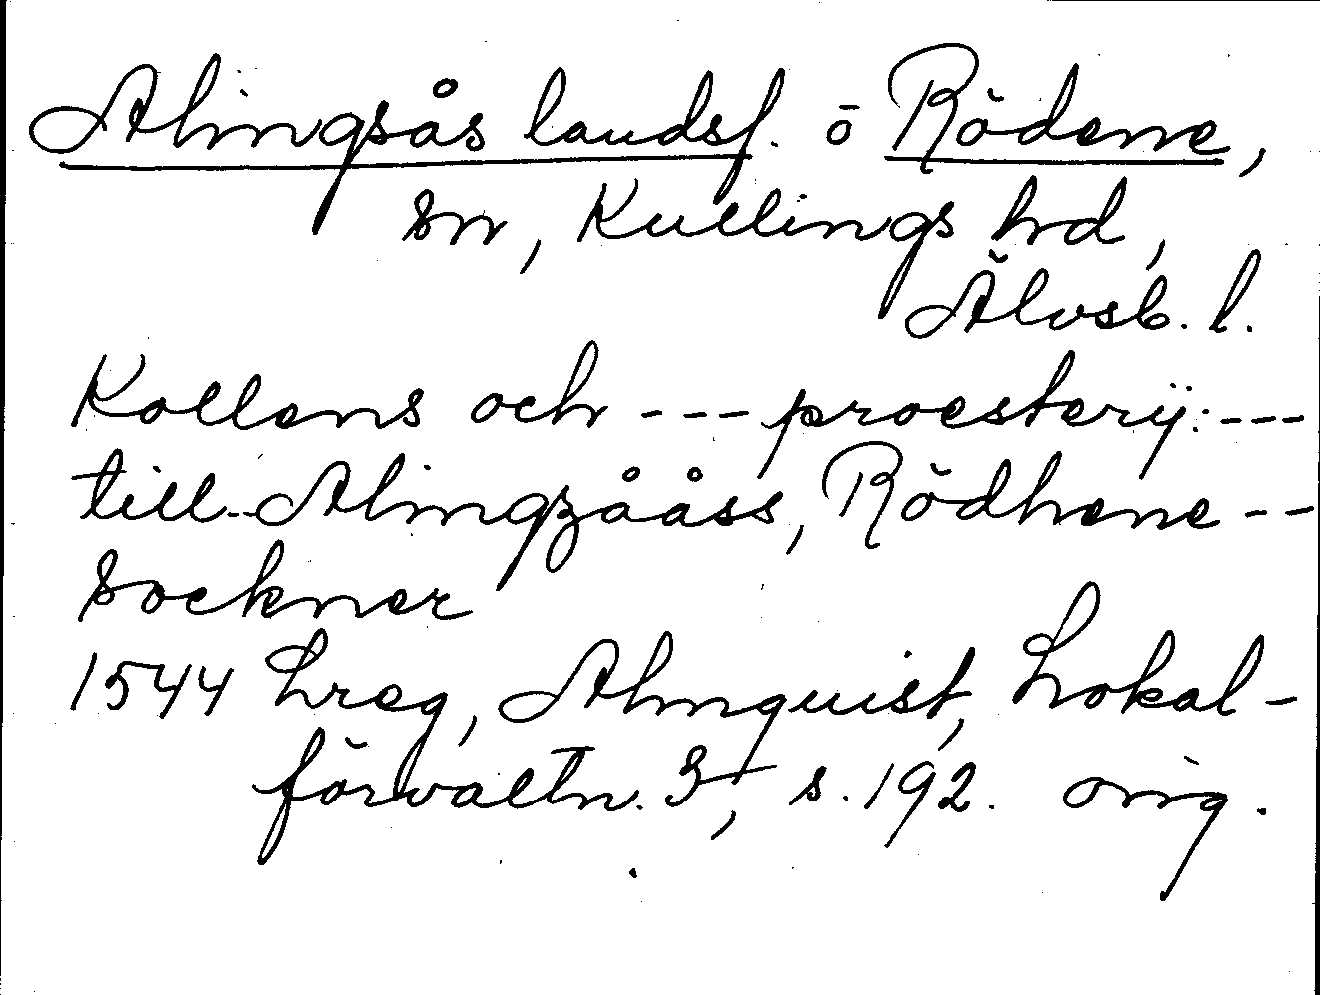 Alingsås landsf. ō Rödene,
sn, Kullings hd,
Älvsb. l.
Kollens och --- proesterij: ---
till -- Alingzååss, Rödhene --
Sockner
1544 Lreg, Almquist, Lokal-
förvaltn. 3, s. 192. orig.